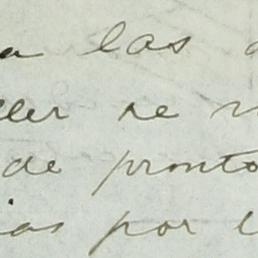 a las
ller se
de pronto
ias por l